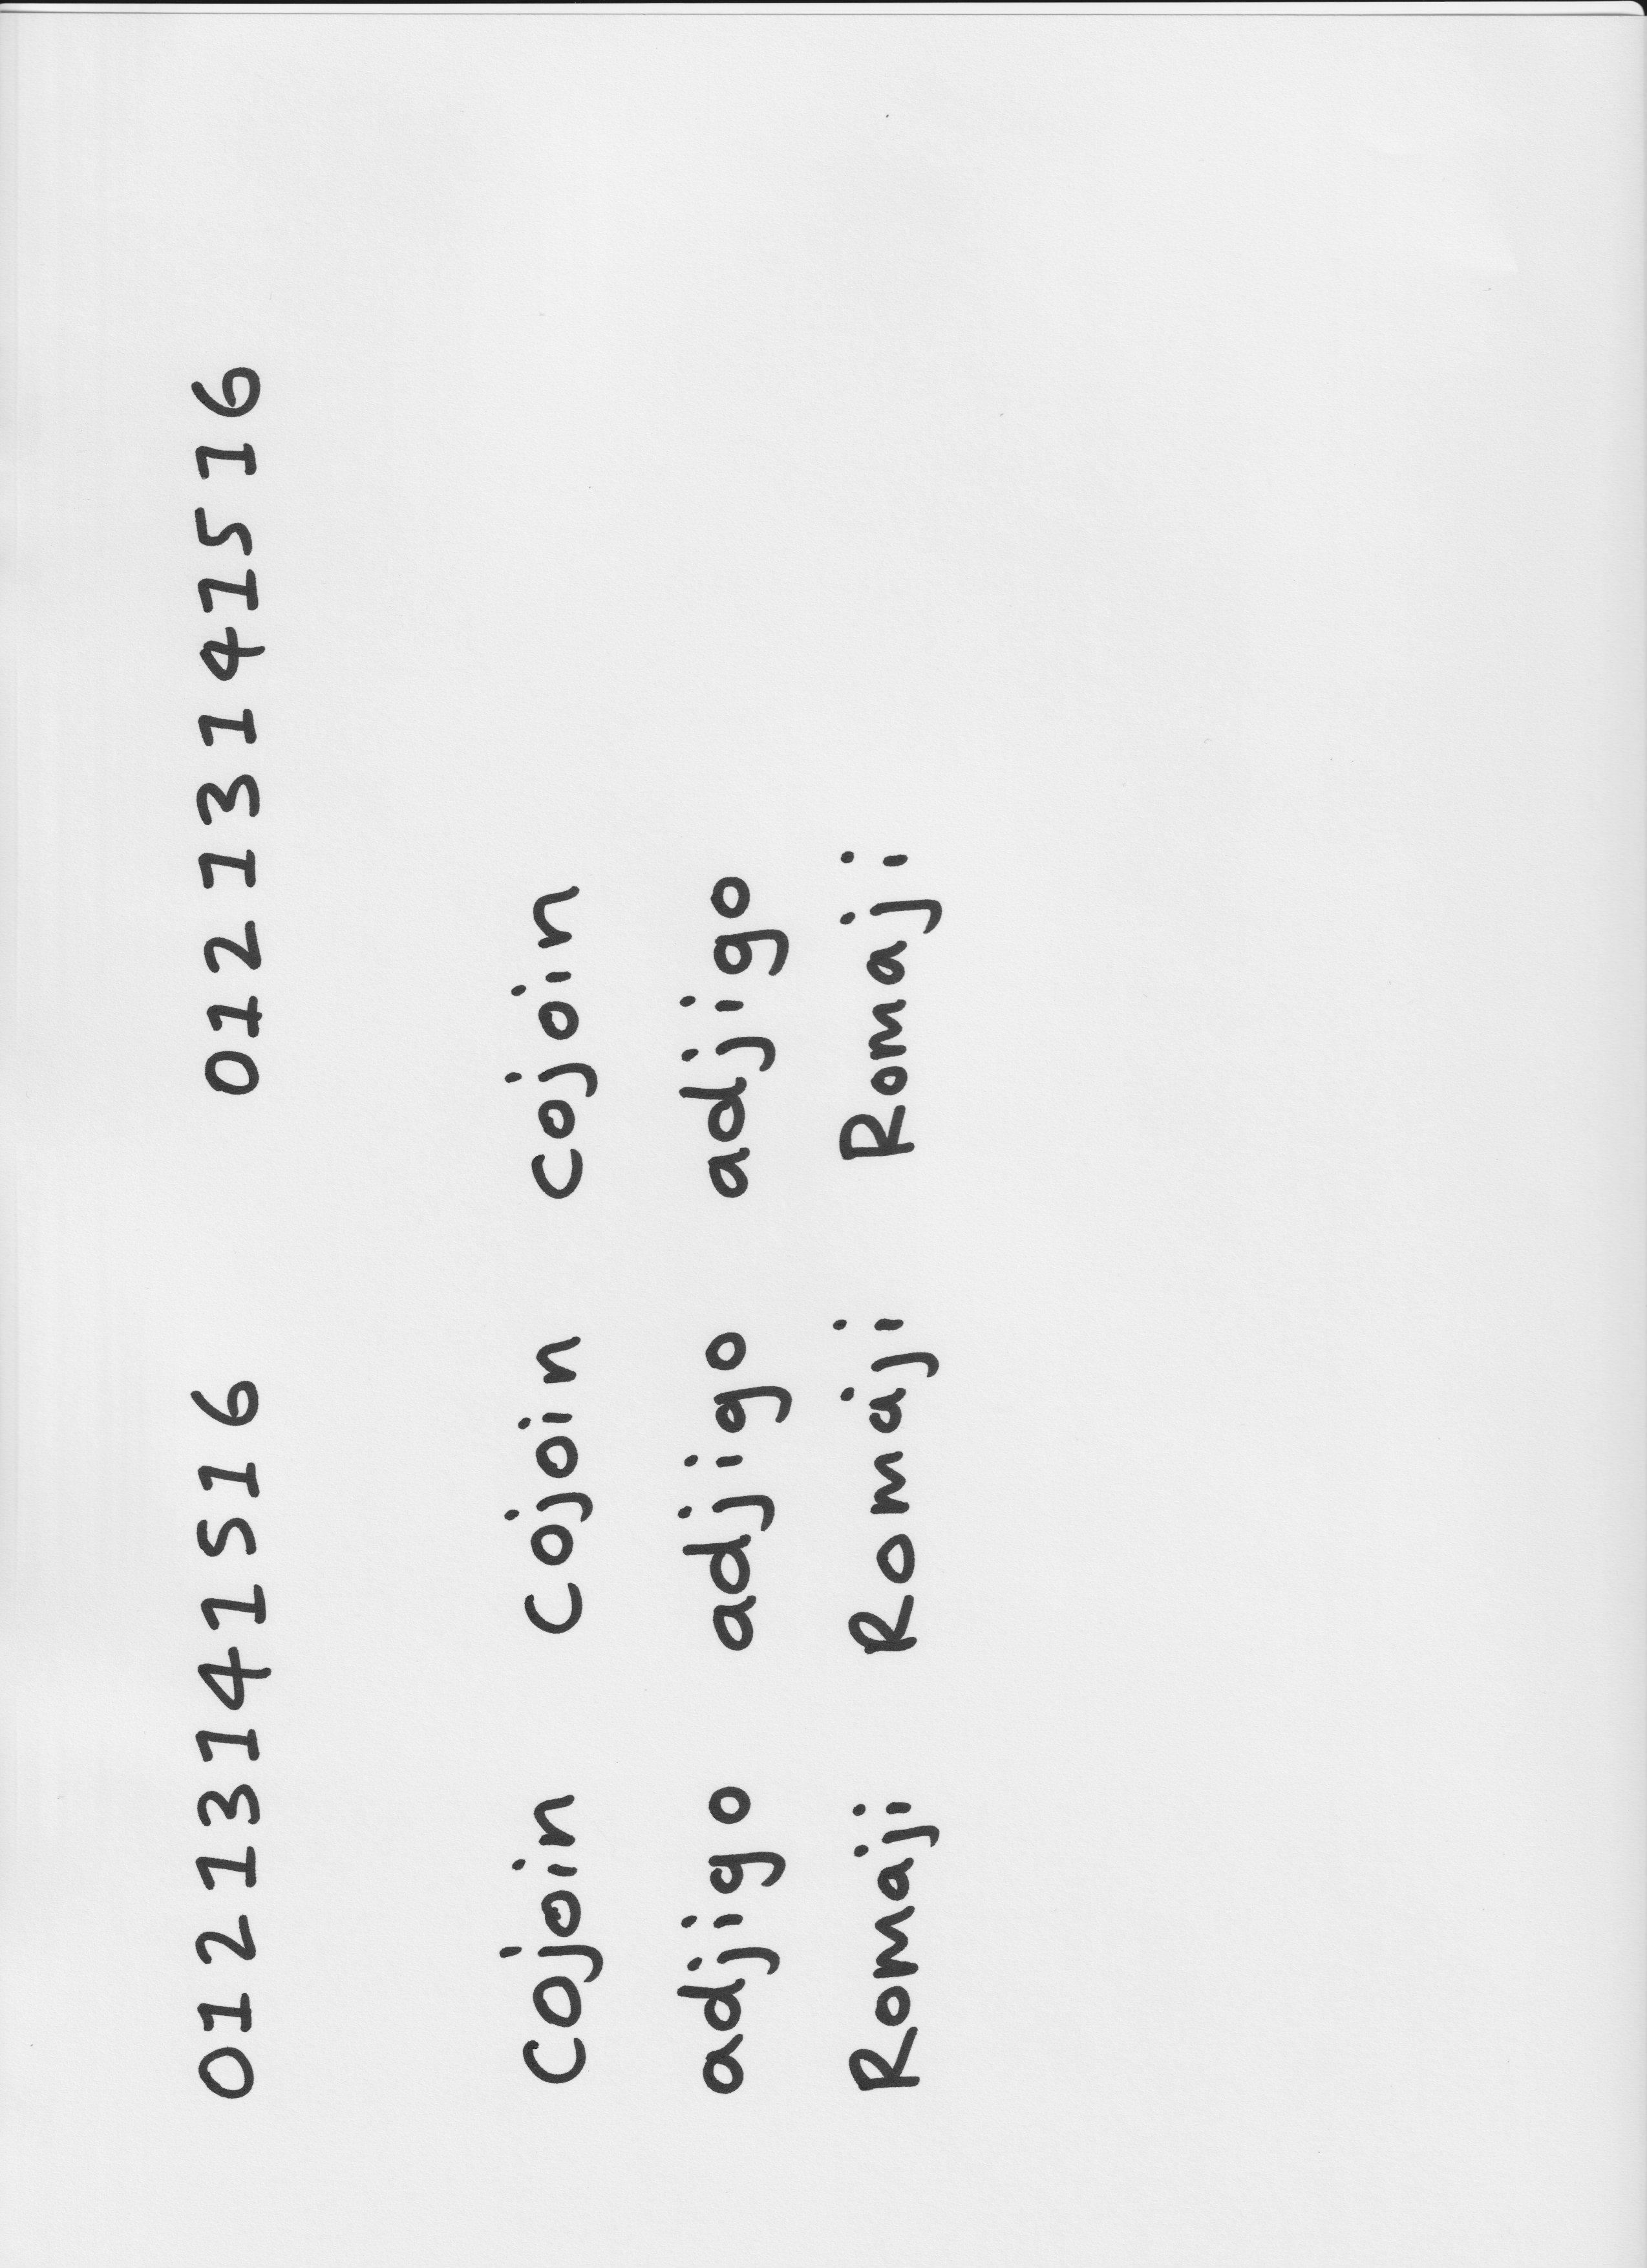 01213141516 01213141516
cojoin cojoin cojoin
adjigo adjigo adjigo
Romaji Romaji Romaji